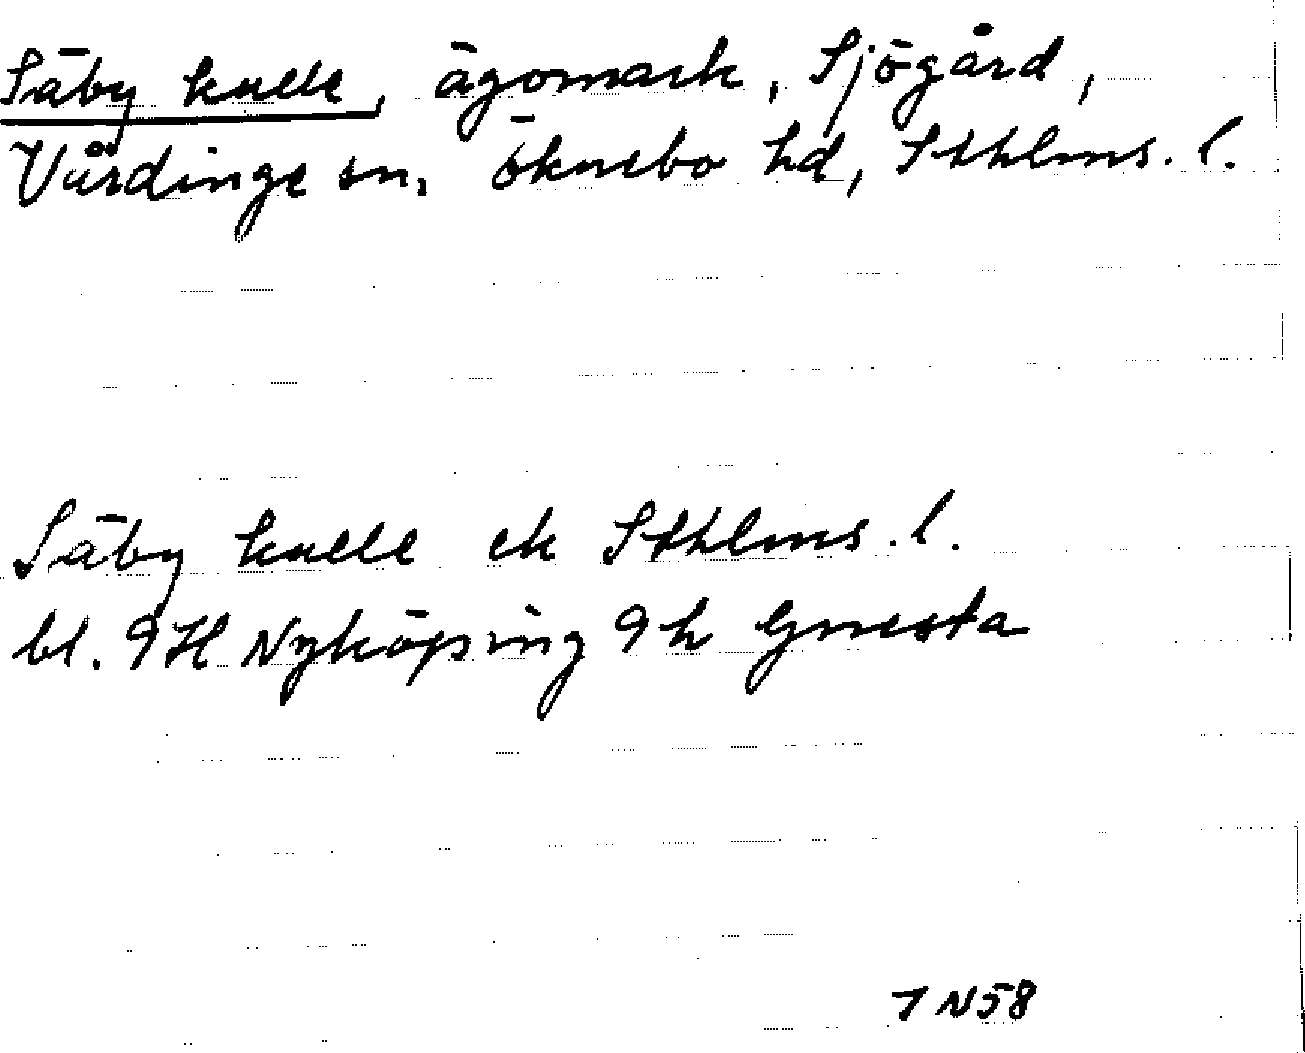 Säby kulle, ägomark, Sjögård,
Vårdinge sn. Öknebo hd, Sthlms. l.
Säby kulle ek Sthlms. l.
bl. 9H Nyköping 9h Gnesta
TN58